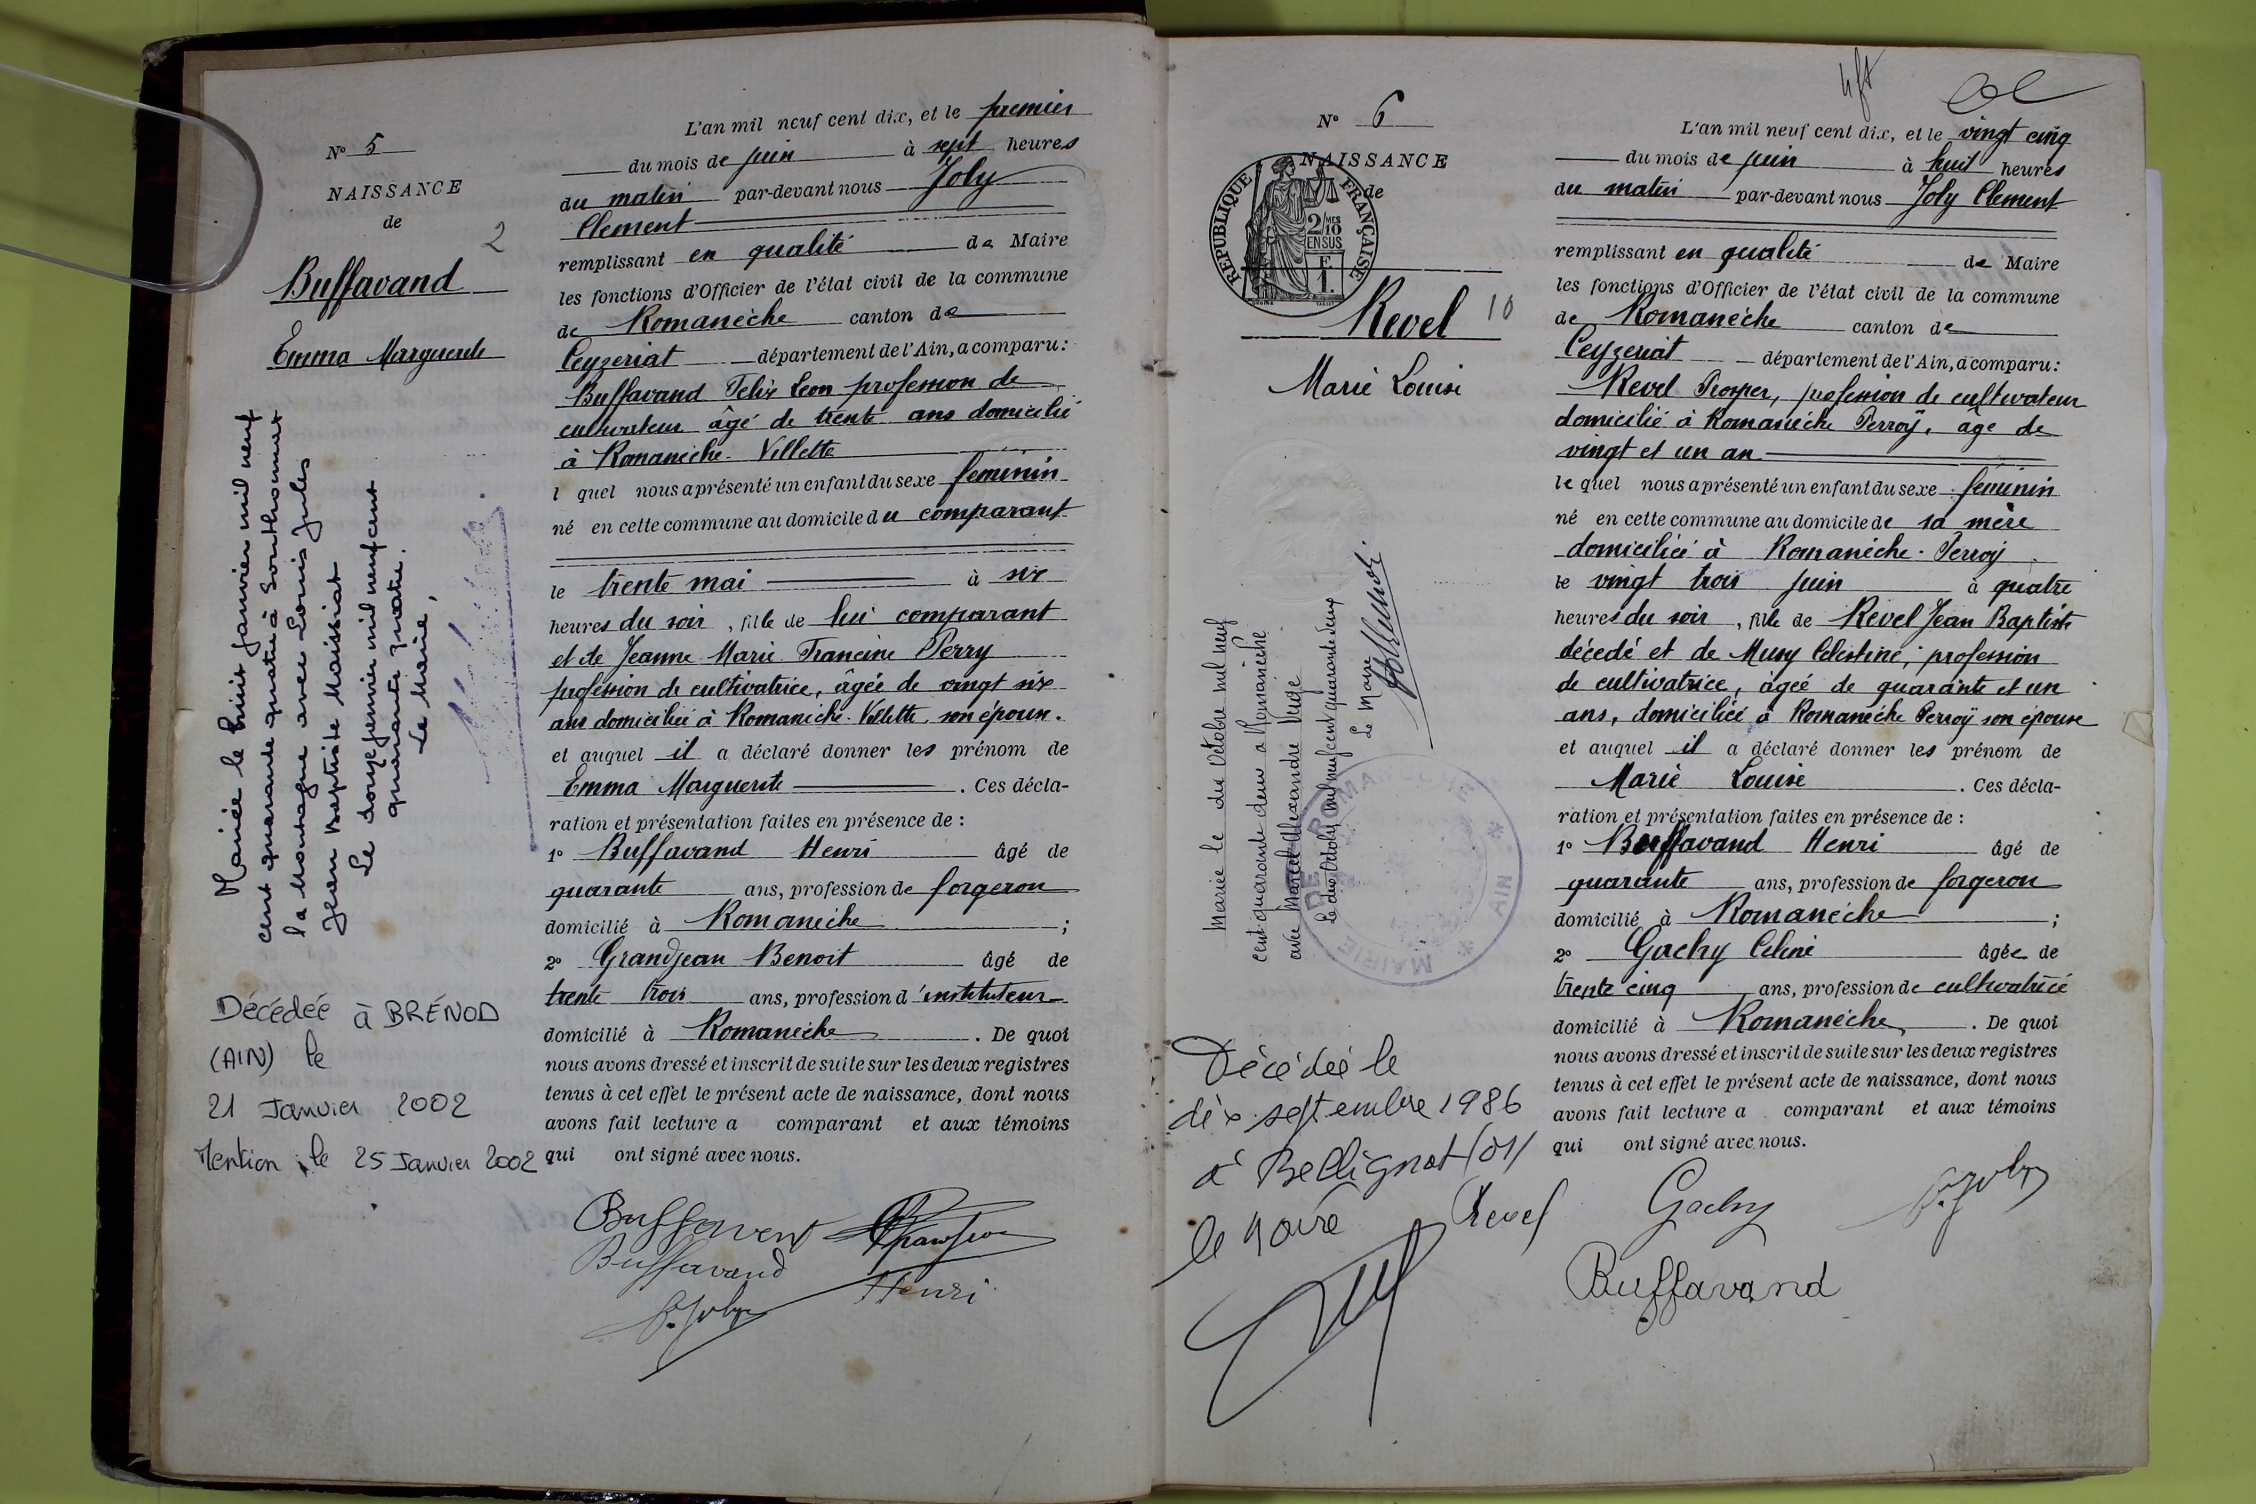 N° 5
NAISSANCE
de
2
Buffavand
Emma Marguerite
Mariée le huit janvier mil neuf
cent quarante quatre à Sonthonnax
la Montagne avec Louis Jules
Jean Baptiste Maissiat
Le douze janvier mil neuf cent
quarante quatre.
Le Maire,
Décédée à BRÉNOD
(AIN) le
21 Janvier 2002
Mention le 25 Janvier 2002
L'an mil neuf cent dix, et le premier
du mois de juin à sept heures
du matin par-devant nous Joly
Clement
remplissant en qualité de Maire
les fonctions d'Officier de l'état civil de la commune
de Romanèche canton de
Ceyzeriat département de l'Ain, a comparu:
Buffavand Felix Leon profession de
cultivateur âgé de trente ans domicilié
à Romanèche-Villette
l quel nous a présenté un enfant du sexe féminin
né en cette commune au domicile du comparant
le trente mai à six
heures du soir, fille de lui comparant
et de Jeanne Marie Francine Perry
profession de cultivatrice, âgée de vingt six
ans domiciliée à Romanèche-Villette, son épouse.
et auquel il a déclaré donner les prénom de
Emma Marguerite. Ces décla-
ration et présentation faites en présence de :
1° Buffavand Henri âgé de
quarante ans, profession de forgeron
domicilié à Romanèche ;
2° Grandjean Benoit âgé de
trente trois ans, profession d'instituteur
domicilié à Romanèche. De quoi
nous avons dressé et inscrit de suite sur les deux registres
tenus à cet effet le présent acte de naissance, dont nous
avons fait lecture a comparant et aux témoins
qui ont signé avec nous.
Buffavent
Buffavand Henri
C. Joly
N° 6
NAISSANCE
de
REPUBLIQUE FRANÇAISE
2/10 MES
EN SUS
F.
1.
Revel 10
Marie Louise
Mariée le dix Octobre mil neuf
cent quarante deux a Romanèche
avec Marcel Alexandre
Le dix Octobre mil neuf cent quarante deux
Le Maire
MAIRIE DE ROMANECHE * AIN *
Décédée le
dix septembre 1986
à Bellignat (01)
le Maire
L'an mil neuf cent dix, et le vingt cinq
du mois de juin à huit heures
du matin par-devant nous Joly Clement
remplissant en qualité de Maire
les fonctions d'Officier de l'état civil de la commune
de Romanèche canton de
Ceyzeriat département de l'Ain, a comparu:
Revel Prosper, profession de cultivateur
domicilié à Romanèche Perroÿ, âgé de
vingt et un an
le quel nous a présenté un enfant du sexe féminin
né en cette commune au domicile de sa mère
domiciliée à Romanèche-Perroÿ
le vingt trois juin à quatre
heures du soir, fille de Revel Jean Baptiste
décedé et de Musy Celestine, profession
de cultivatrice, âgée de quarante et un
ans, domiciliée à Romanèche Perroÿ son épouse
et auquel il a déclaré donner les prénom de
Marie Louise. Ces décla-
ration et présentation faites en présence de :
1° Buffavand Henri âgé de
quarante ans, profession de forgeron
domicilié à Romanèche ;
2° Gachy Celine âgée de
trente cinq ans, profession de cultivatrice
domicilié à Romanèche. De quoi
nous avons dressé et inscrit de suite sur les deux registres
tenus à cet effet le présent acte de naissance, dont nous
avons fait lecture a comparant et aux témoins
qui ont signé avec nous.
Revel Gachy C. Joly
Buffavand